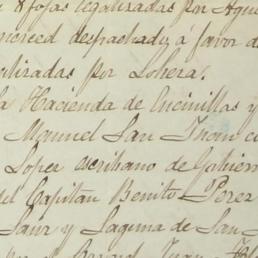 8 fojas legalizadas por Agu
merced despachada á favor d
alizadas por Lohera.
la Hacienda de Encinillas y
Manuel San Juan c
Lopez escribano de Gobier
del Capitan Benito Perez
Sauz y Laguna de San
Juan